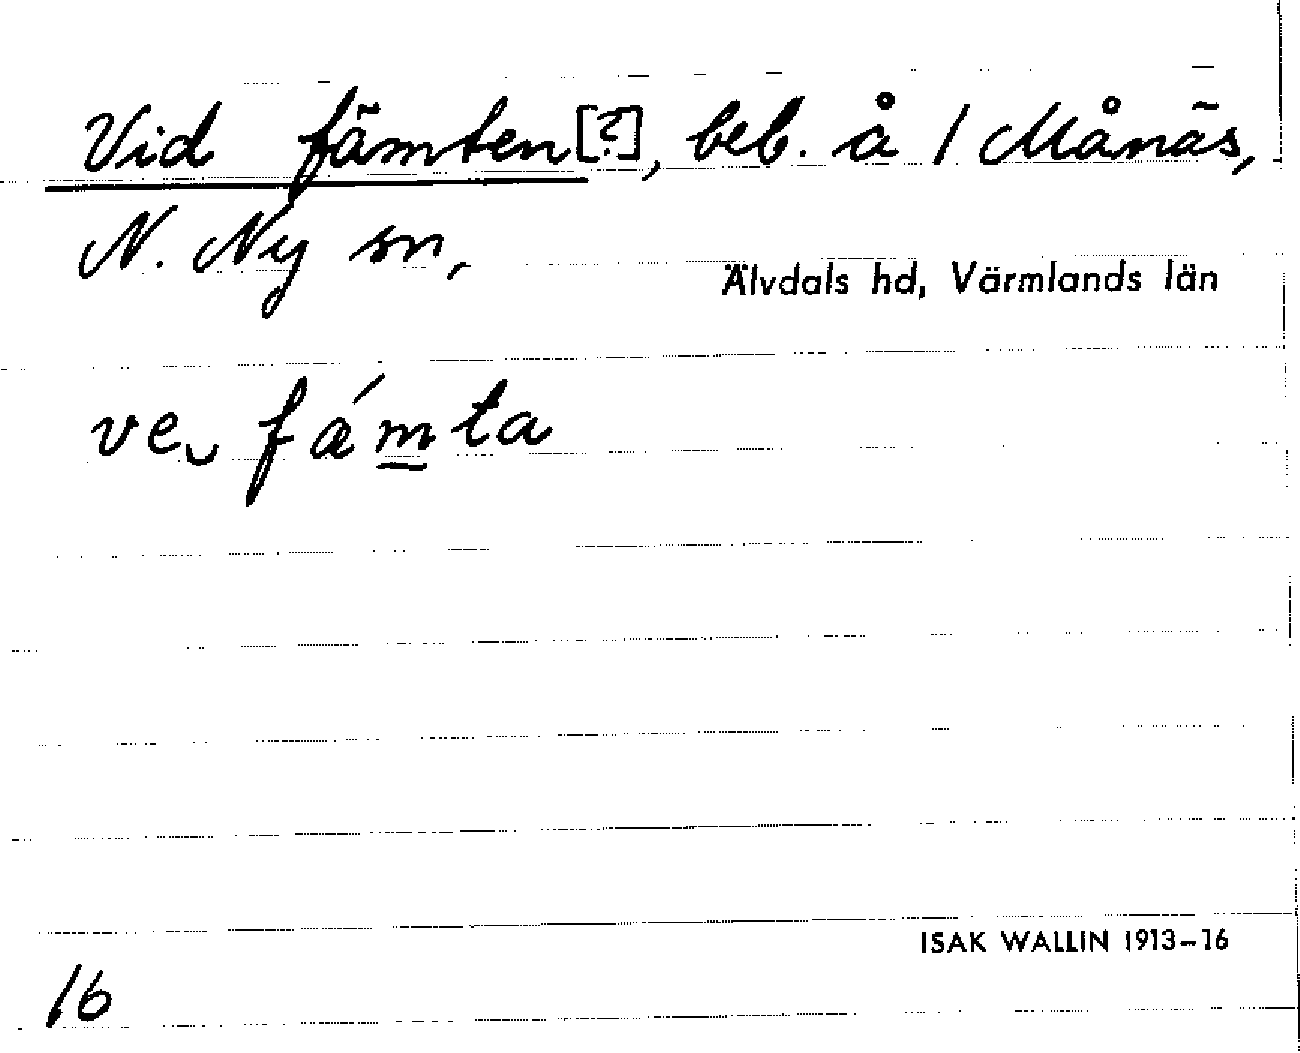 Vid fämten[?], beb. å 1 Månäs,
N. Ny sn,
Älvdals hd, Värmlands län
ve‿ fǽmta
ISAK WALLIN 1913–16
16